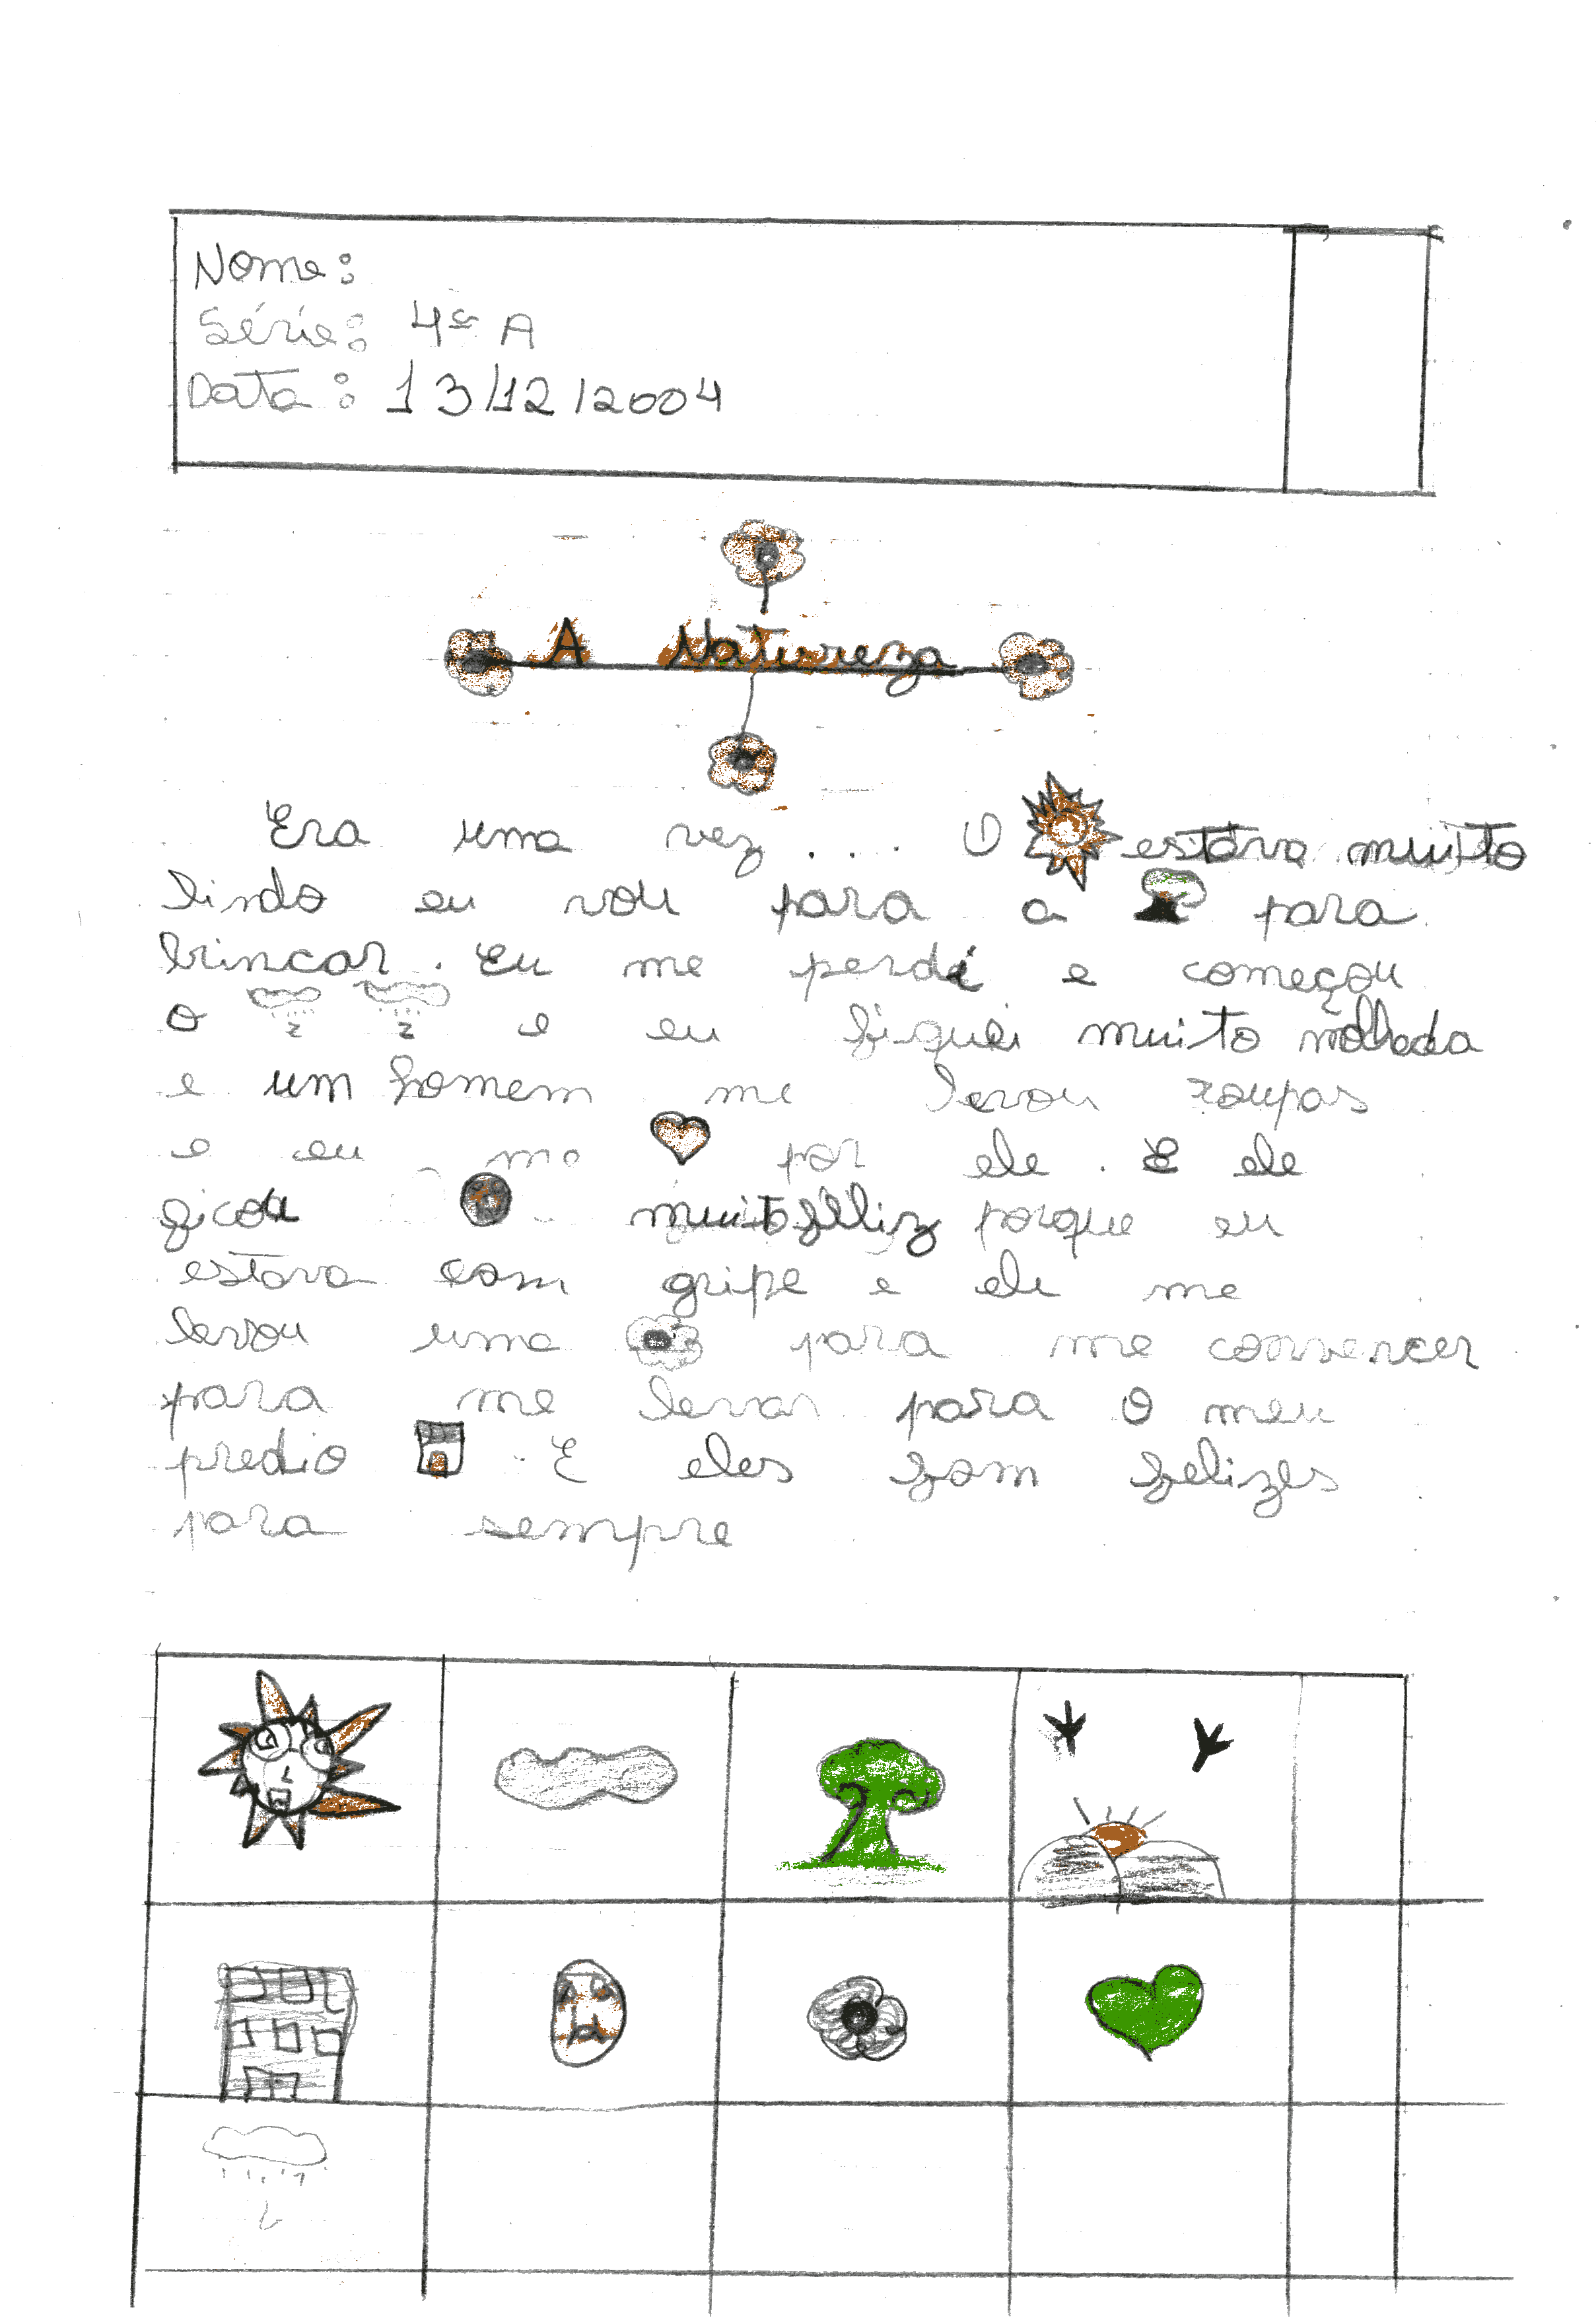 Nome:
Série: 4ª A
Data: 13/12/2004
A Natureza
Era uma vez... O estava muito
lindo eu vou para a para
brincar. Eu me perdi e começou
o e eu fiquei muito molhada
e um homem me levou roupas
e eu me por ele. E ele
ficou muito feliz porque eu
estava com gripe e ele me
levou uma para me convencer
para me levar para o meu
predio . E eles fom felizes
para sempre